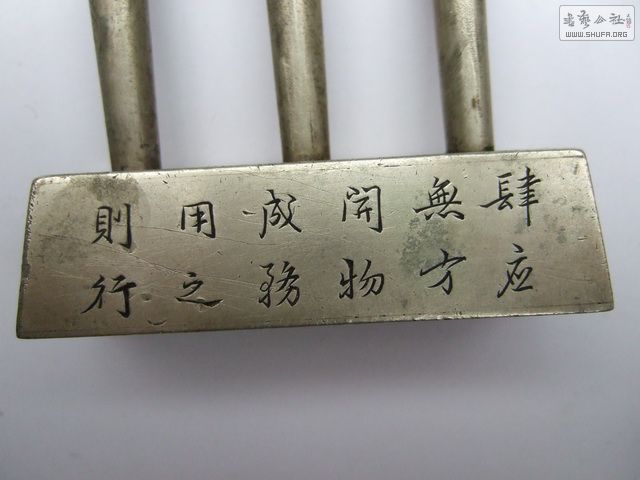 肆应
無方
開物
成務
用之
則行
书藝公社
WWW.SHUFA.ORG